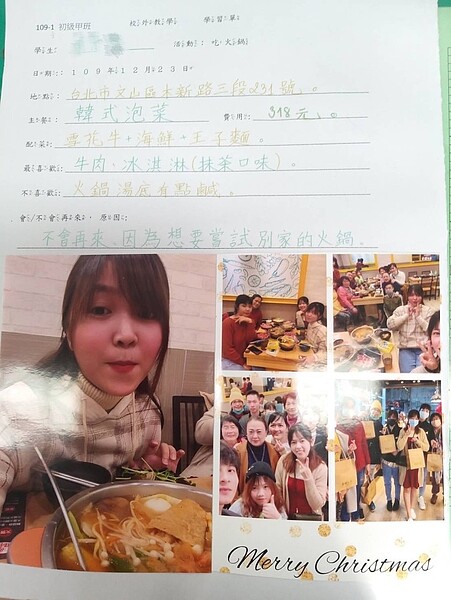 109-1 初級甲班 校外教學 學習單
學生: 活動:吃火鍋
日期:109年12月23日
地點:台北市文山區木新路三段231號。
主餐:韓式泡菜 費用:318元。
配菜:雪花牛+海鮮+王子麵。
最喜歡:牛肉、冰淇淋(抹茶口味)。
不喜歡:火鍋湯底有點鹹。
會/不會再來,原因:
不會再來。因為想要嘗試別家的火鍋。
Merry Christmas